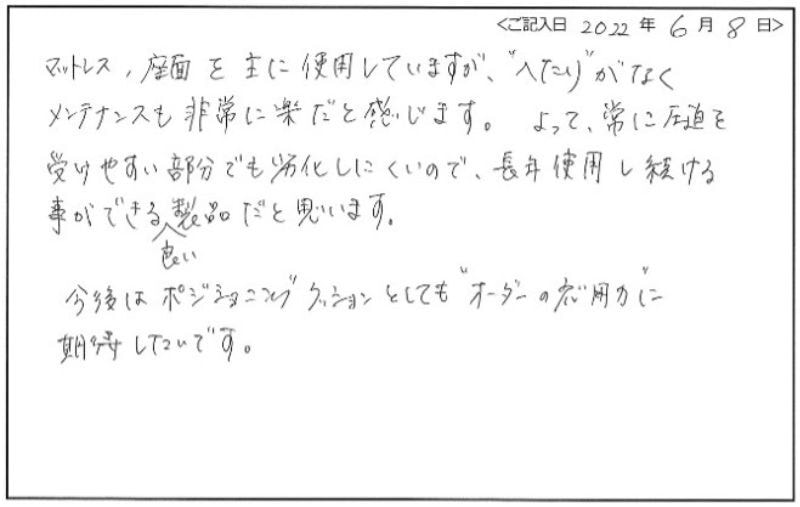 <ご記入日 2022 年 6 月 8 日>
マットレス、座面を主に使用していますが、"へたり"がなく
メンテナンスも非常に楽だと感じます。よって、常に圧迫を
受けやすい部分でも劣化しにくいので、長年使用し続ける
事ができる良い製品だと思います。
今後はポジショニングクッションとしても"オーダーの応用力"に
期待したいです。